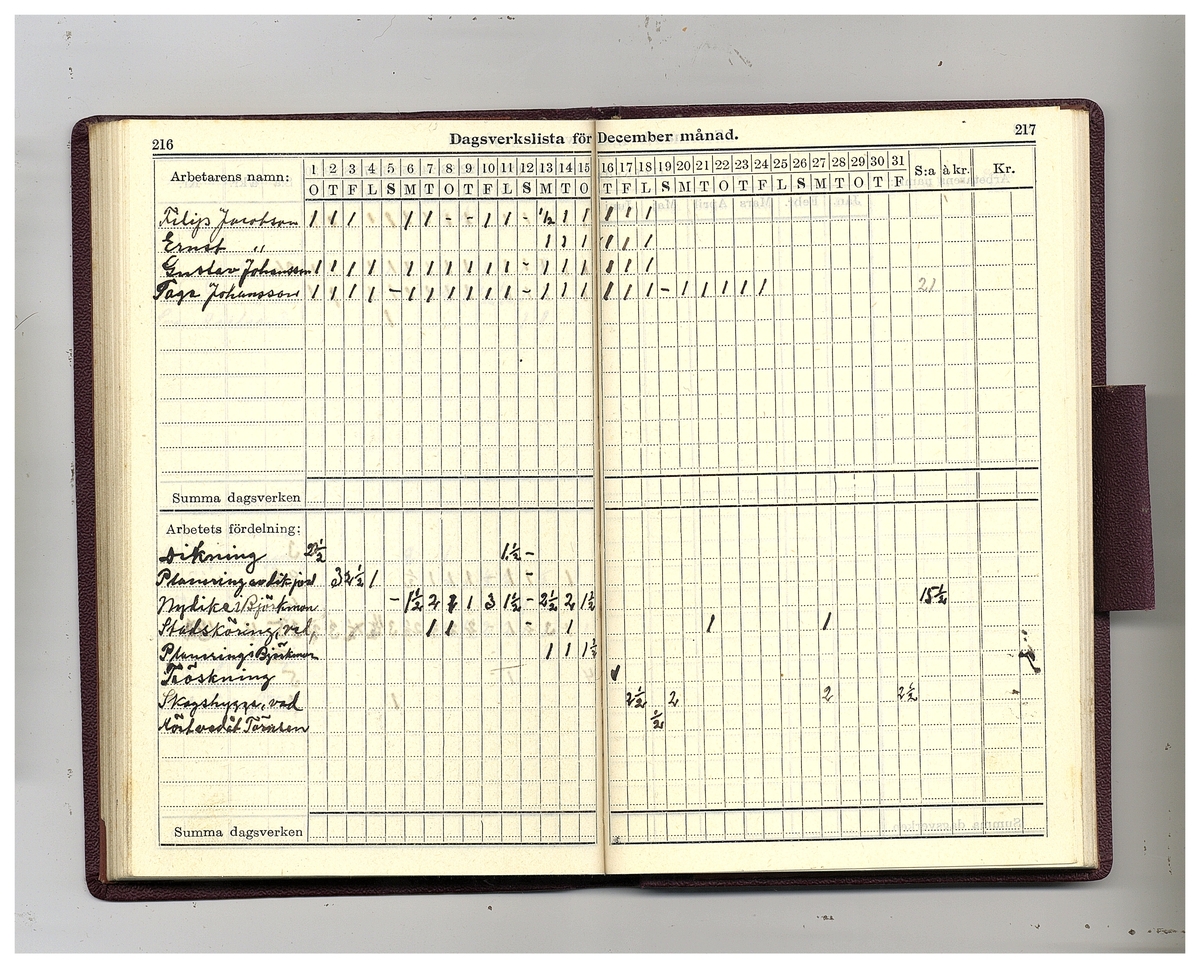 216 Dagsverkslista för December månad. 217
Arbetarens namn: 1 2 3 4 5 6 7 8 9 10 11 12 13 14 15 16 17 18 19 20 21 22 23 24 25 26 27 28 29 30 31 S:a à kr. Kr.
O T F L S M T O T F L S M T O T F L S M T O T F L S M T O T F
Filip Jacobson 1 1 1 1 1 - - 1 1 - 1/2 1 1 1 1 1
Ernst " 1 1 1 1 1 1
Gustav Johansson 1 1 1 1 - 1 1 1 1 1 1 - 1 1 1 1 1 1
Tage Johansson 1 1 1 1 - 1 1 1 1 1 1 - 1 1 1 1 1 1 - 1 1 1 1 1 21
Summa dagsverken
Arbetets fördelning:
Dikning 2½ 1½ -
Planering av dikjord 3 2½ 1 -
Nydike Björkmon - 1½ 2 2 1 3 1½ - 2½ 2 1½ 15½
Stadsköring, ved, 1 1 - 1 1 1
Planering Björkmon 1 1 1½
Tröskning 1
Skogshygge, ved 2½ 2 2 2½
½
Summa dagsverken